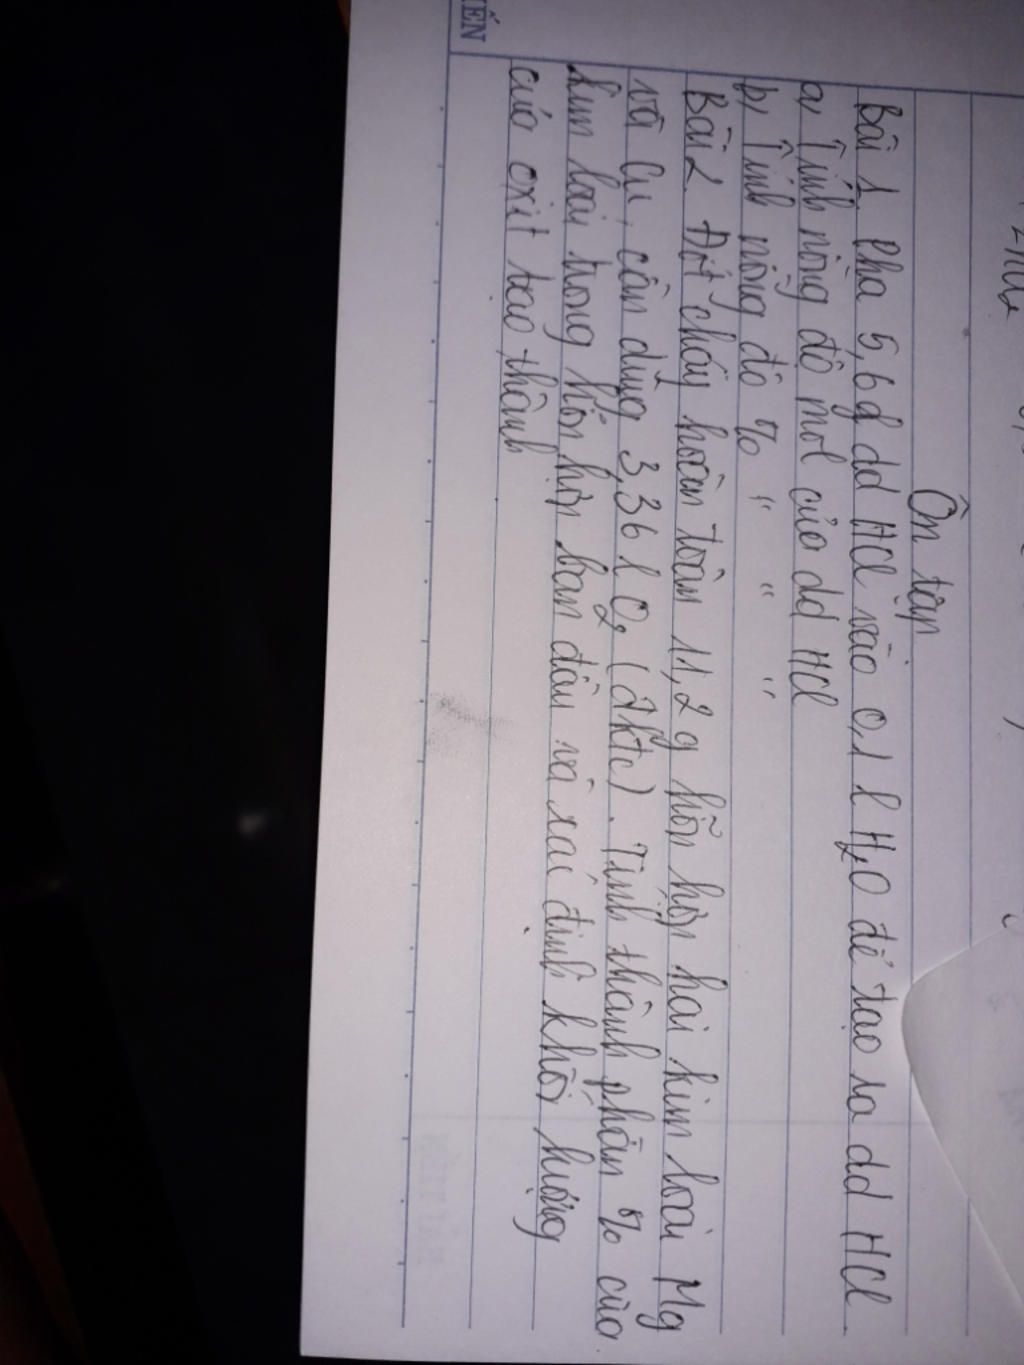 Ôn tập
Bài 1 Pha 5,6g dd HCl vào 0,1 l H2O để tạo ra dd HCl.
a, Tính nồng độ mol của dd HCl
b, Tính nồng độ % " " "
Bài 2 Đốt cháy hoàn toàn 11,2 g hỗn hợp hai kim loại Mg
và Cu, cần dùng 3,36 l O2 (đktc). Tính thành phần % của
kim loại trong hỗn hợp ban đầu và xác định khối lượng
của oxit tạo thành
IẾN